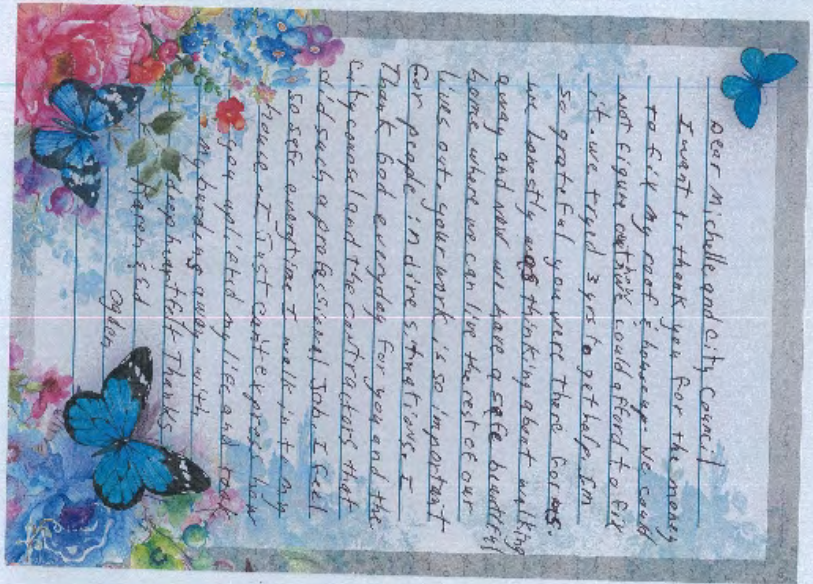 Dear Michelle and City Council
I want to thank you for the money
to fix my roof & house up. We could
not figure out how could afford to fix
it. we tryed 3 yrs to get help. I'm
so grateful you were there for us.
we honestly was thinking about walking
away and now we have a safe beautiful
home where we can live the rest of our
lives out. your work is so important
for people in dire situations. I
Thank God everyday for you and the
City and the contractors that
did such a professional Job. I feel
so safe everytime I walk in to my
house. I Just can't express how
you uplifted my life and took
my burdens away. with
deep heartfelt Thanks
Karen & Ed
Ogden